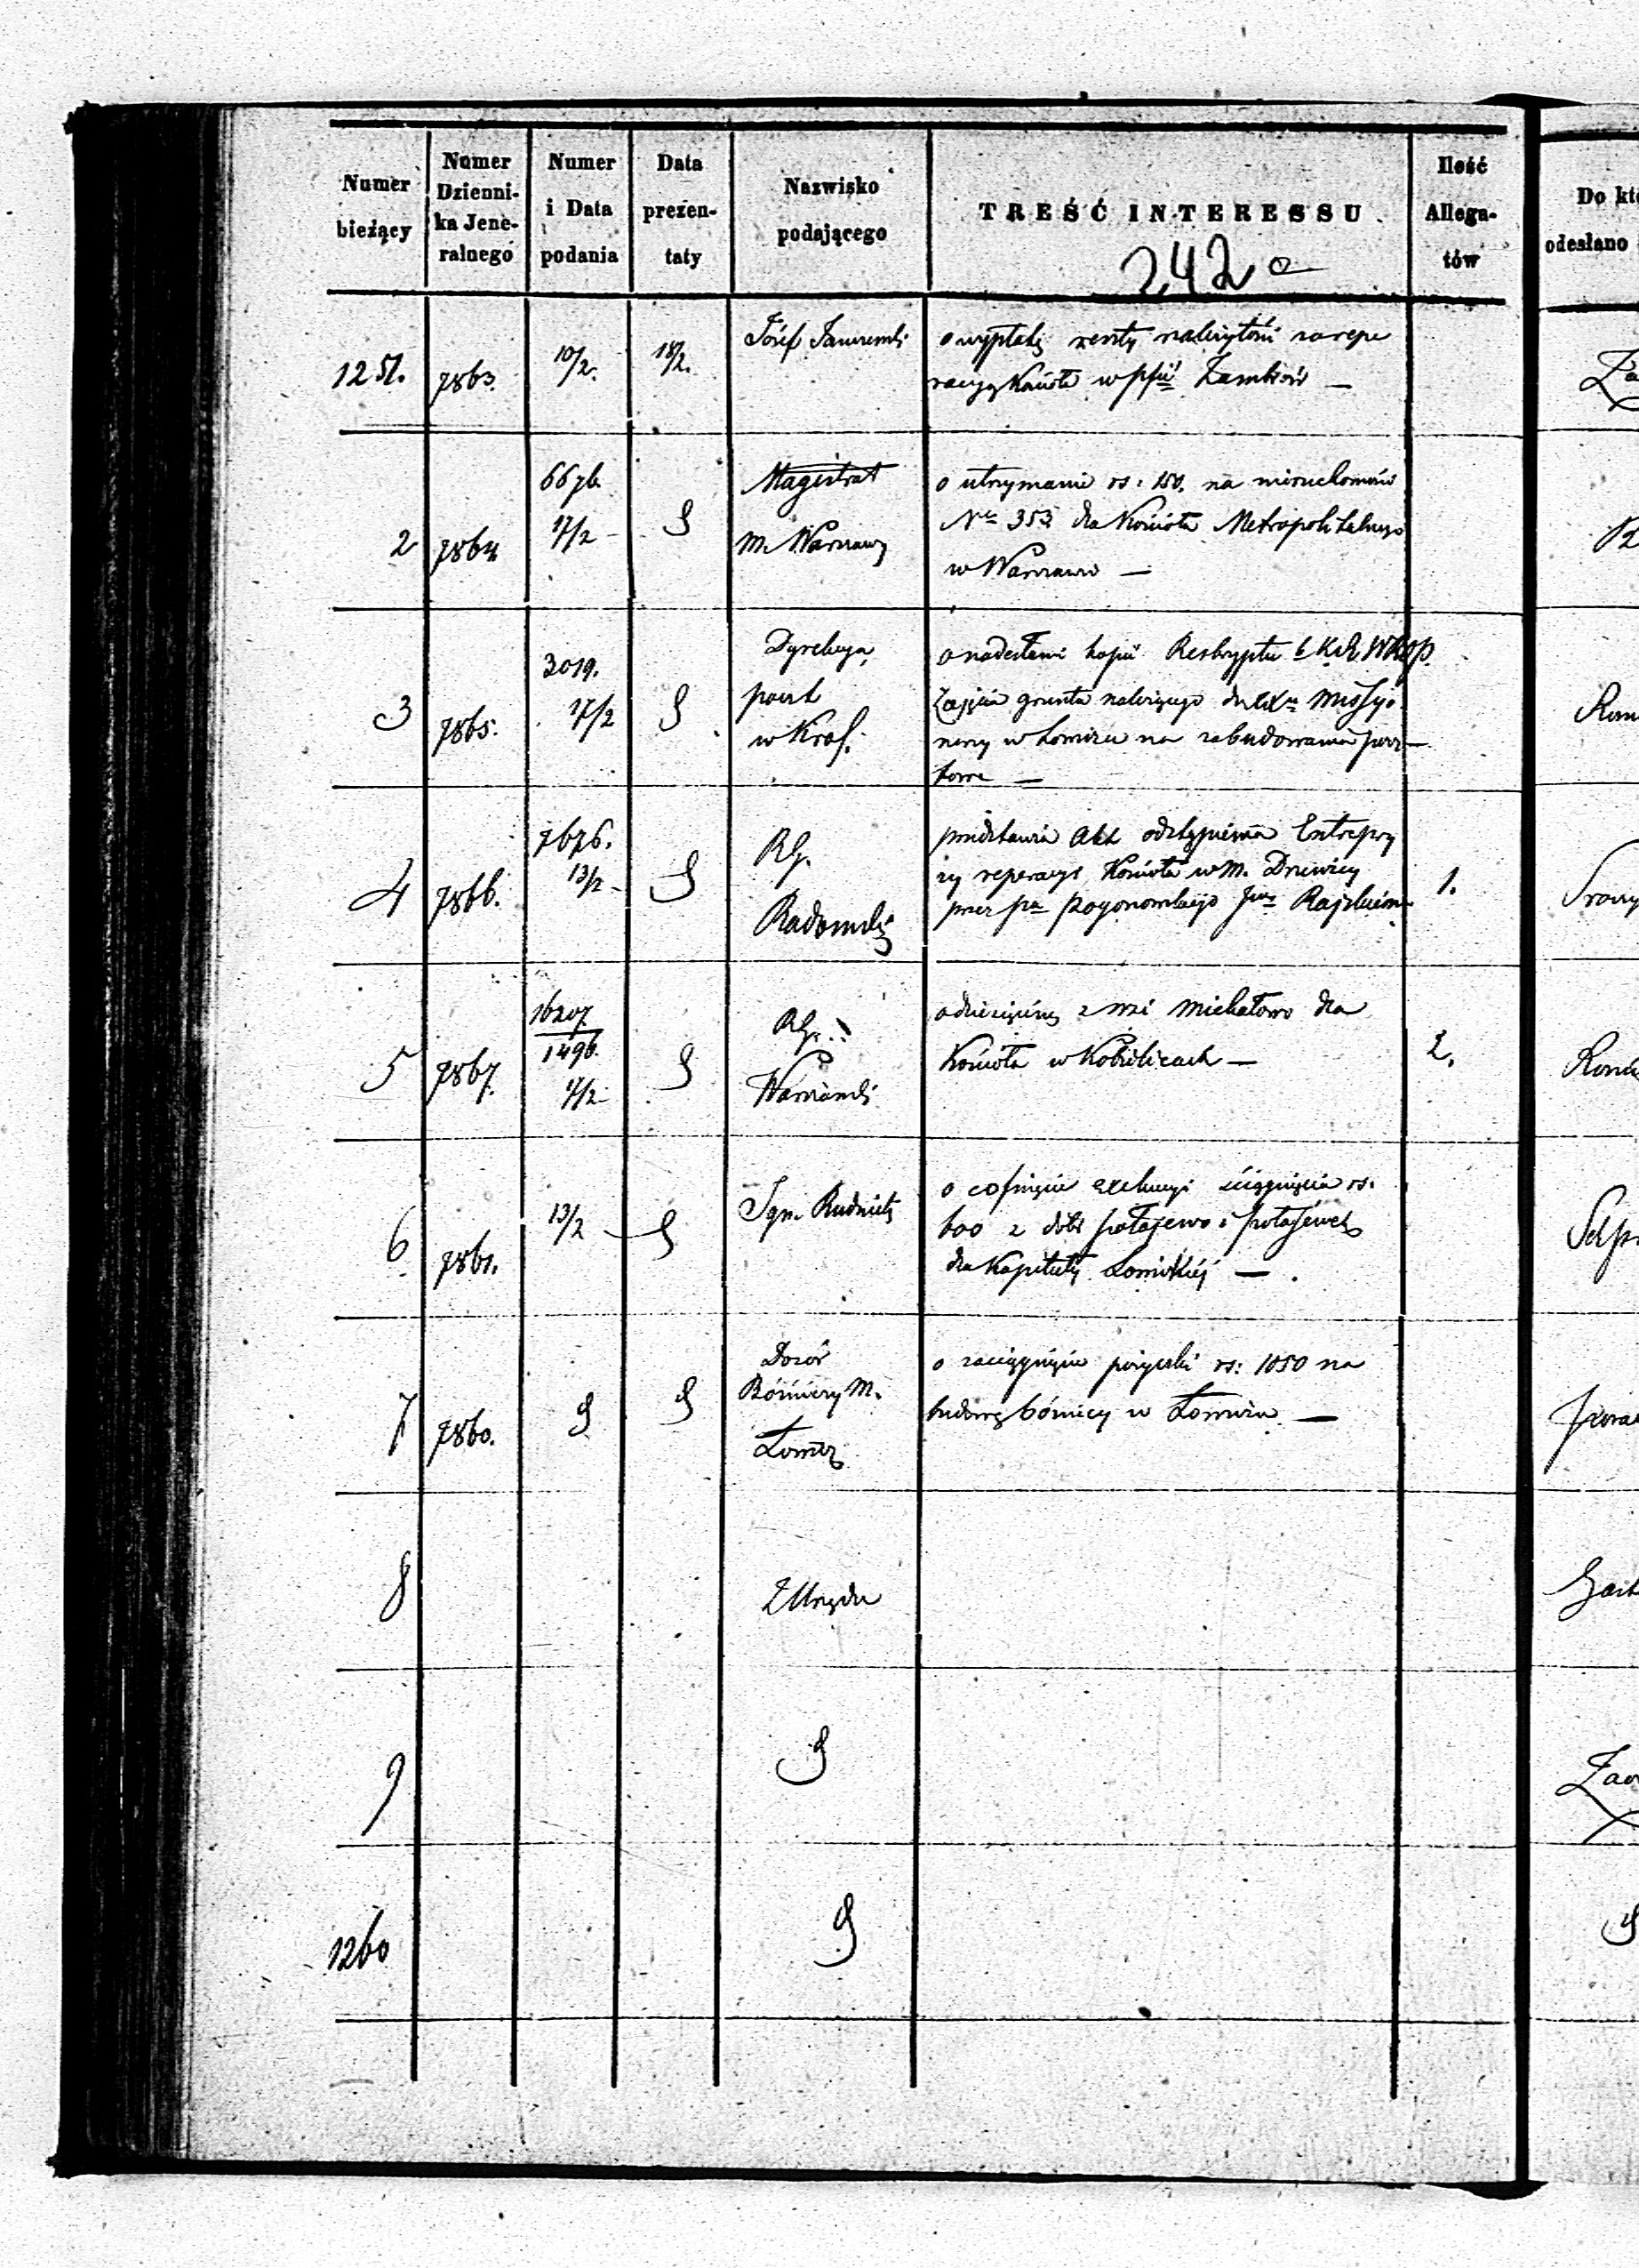 Numer bieżący
Numer Dzienni-
ka Jene-
ralnego
Numer
i Data
podania
Data
prezen-
taty
Nazwisko
podającego
TREŚĆ INTERESSU
242
Ilość
Allega-
tów
Do któ
odesłano
1251.
7863.
10/2.
18/2.
Józef
o wypłatę reszty należytości za repe
racyą Kościoła w
2
7864
17/2
Magistrat
m. Warszawy
o utrzymanie rs: 150. na nieruchomości
No 353 dla Kościoła Metropolitalnego
w Warszawie —
3
7865.
3019.
17/2
Dyrekcya
poczt
w Król.
o nadesłanie kopii Reskryptu b.
zajęcia gruntu należącego do
narzy w Łomży na zabudowania pocz-
towe —
4
7866.
7676.
13/2
RG.
Radomski
przedstawia Akt odstąpienia Entrepry
zy reperacyi Kościoła w M. Drzewicy
przez
1.
5
7867.
16207
1496.
17/2
RG.
Warszawski
o dziesięcinę z wsi Michałowo dla
Kościoła w
2.
6
7861.
13/2
Ign. Rudnicki
o cofnięcie exekucyi ściągnięcia rs.
600 z dóbr
dla Kapituły
7
7860.
Dozór
Bóźniczy M.
Łomży
o zaciągnięcie pożyczki rs: 1050 na
budowę bóżnicy w Łomży. —
8
Z Urzędu
9
1260